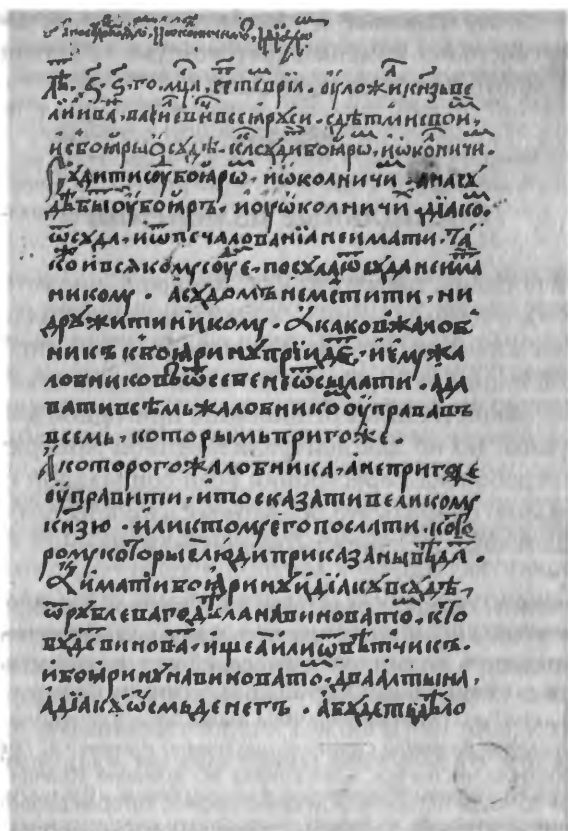 лѣ. ҂з. ѕ. го. мцⷭа, септевріа. оуложи кнѧзь ве
ликіи іва, васиевичь всеѧ рꙋси. с дѣтми своіми,
и с боѧры ѡ сꙋдѣ. какъ сꙋдити боѧрѡ, и ѡколничи.
Сꙋдити сꙋ боѧрѡ. и ѡколничи. а на сꙋ
дѣ быⷮ оу боѧръ. и оу ѡколничиⷯ діако.
ѿ сꙋда. и ѿ печалованіа не имати. та
коⷤ и всѧкомꙋ сꙋⷣе. посꙋла ѿ сꙋда не има
никомꙋ. а сꙋдомъ не мстити, ни
дрꙋжити никомꙋ. а каковъ жалоⷠ
никъ к боѧринꙋ пріидеⷮ, и емꙋ жа
лобниковъ ѿ себе не ѿсылати. а да
вати всѣмь жалобнико оуправа въ
всемь, которымь пригоже.
А которого жалобника, а непригоже
оуправити, и то сказати великомꙋ
кнѧзю. или к томꙋ его послати. кото
ромꙋ которые люди приказаны вѣда.
А имати боѧринꙋ и діакꙋ в сꙋдѣ,
ѿ рꙋблеваго дѣла на виноватоⷨ. кто
бꙋдеⷮ виноваⷮ, ищеа или ѿвѣтчикъ.
и боѧринꙋ на виноватоⷨ. два алтына,
а діакꙋ ѿсмь денегъ. а бꙋдетъ дѣло